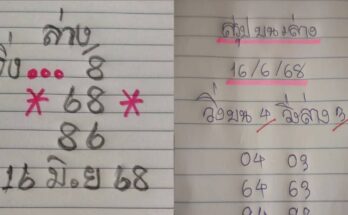 ล่าง
วิ่ง... 8
* 68 *
86
16 มิ.ย 68
สรุป บน ล่าง
16/6/68
วิ่งบน 4 วิ่งล่าง 3
04 03
64 63